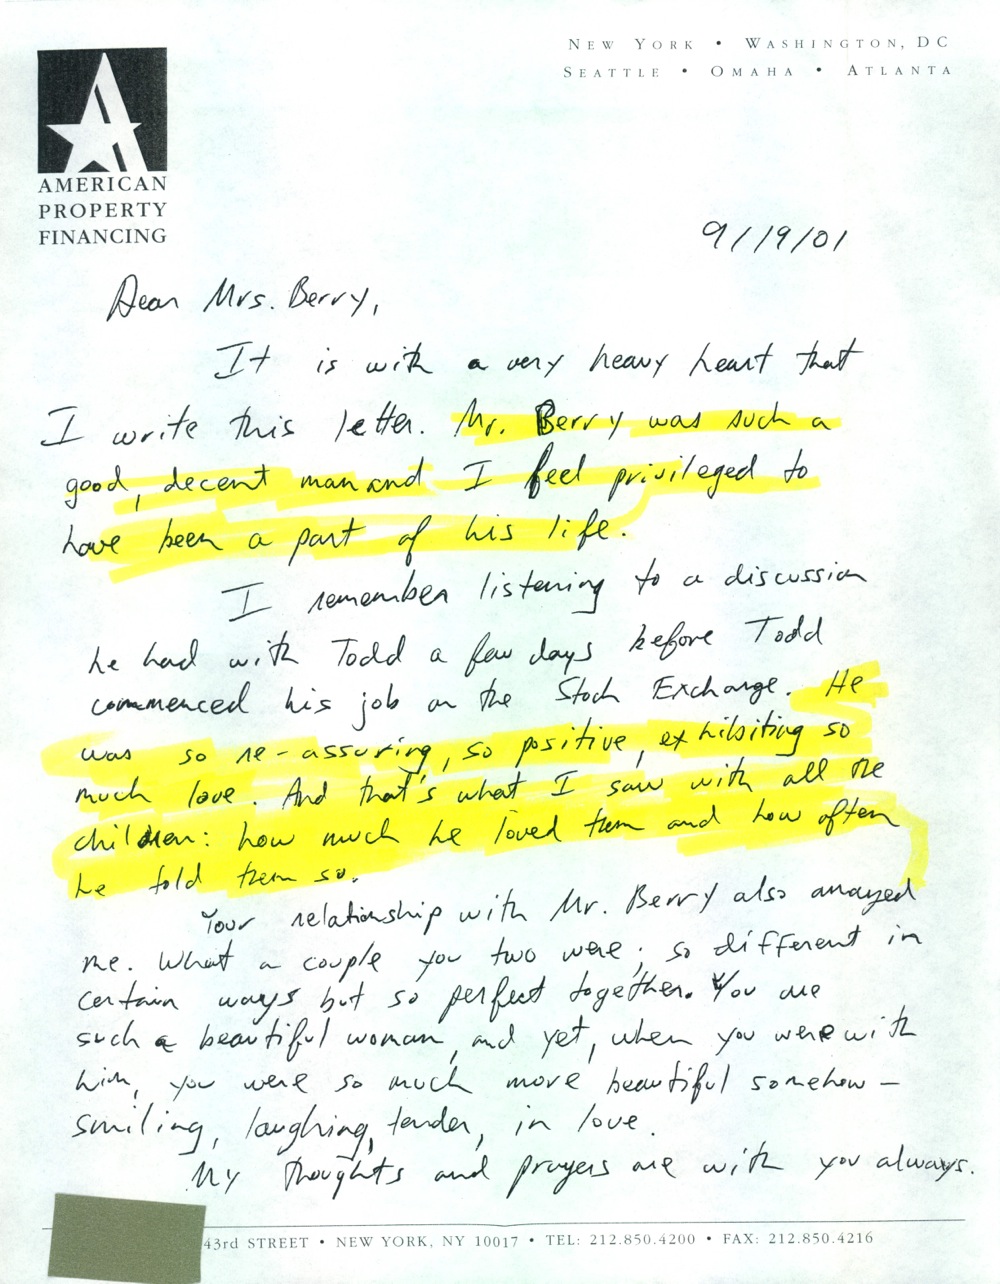 NEW YORK • WASHINGTON, DC
SEATTLE • OMAHA • ATLANTA
AMERICAN
PROPERTY
FINANCING
9/19/01
Dear Mrs. Berry,
It is with a very heavy heart that
I write this letter. Mr. Berry was such a
good, decent man and I feel privileged to
have been a part of his life.
I remember listening to a discussion
he had with Todd a few days before Todd
commenced his job on the Stock Exchange. He
was so re-assuring, so positive, exhibiting so
much love. And that's what I saw with all the
children: how much he loved them and how often
he told them so.
Your relationship with Mr. Berry also amazed
me. What a couple you two were; so different in
certain ways but so perfect together. You are
such a beautiful woman, and yet, when you were with
him, you were so much more beautiful somehow –
smiling, laughing, tender, in love.
My thoughts and prayers are with you always.
43rd STREET • NEW YORK, NY 10017 • TEL: 212.850.4200 • FAX: 212.850.4216